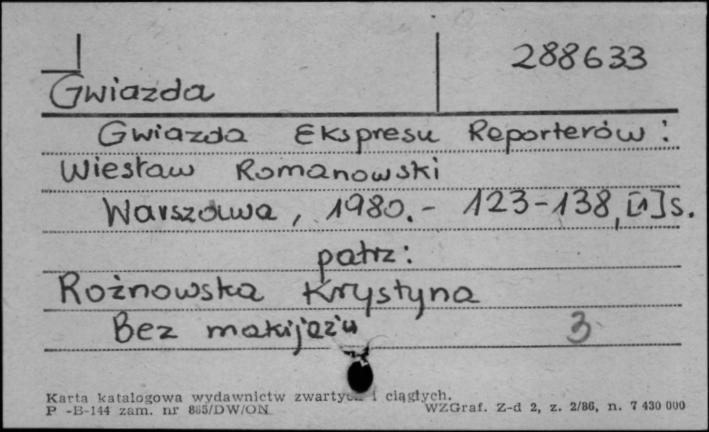 288633
Gwiazda
Gwiazda Ekspresu Reporterów:
Wiesław Romanowski
Warszawa, 1980.- 123-138, [1] s.
patrz:
Rożnowska Krystyna
Bez makijażu 3
Karta katalogowa wydawnictw zwartych i ciągłych.
P -B-144 zam. nr 865/DW/ON WZGraf. Z-d 2, z. 2/86, n. 7 430 000